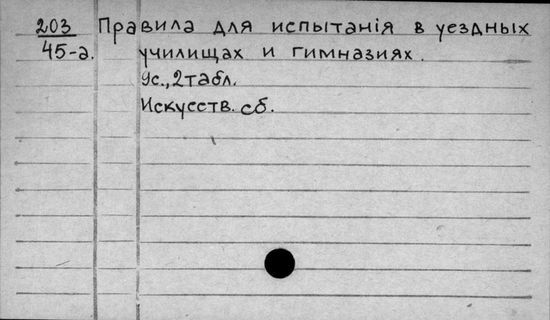 203 Правила для испытанія в уездных
45-а. училищах и гимназиях.
9с., 2 табл.
Искусств. сб.